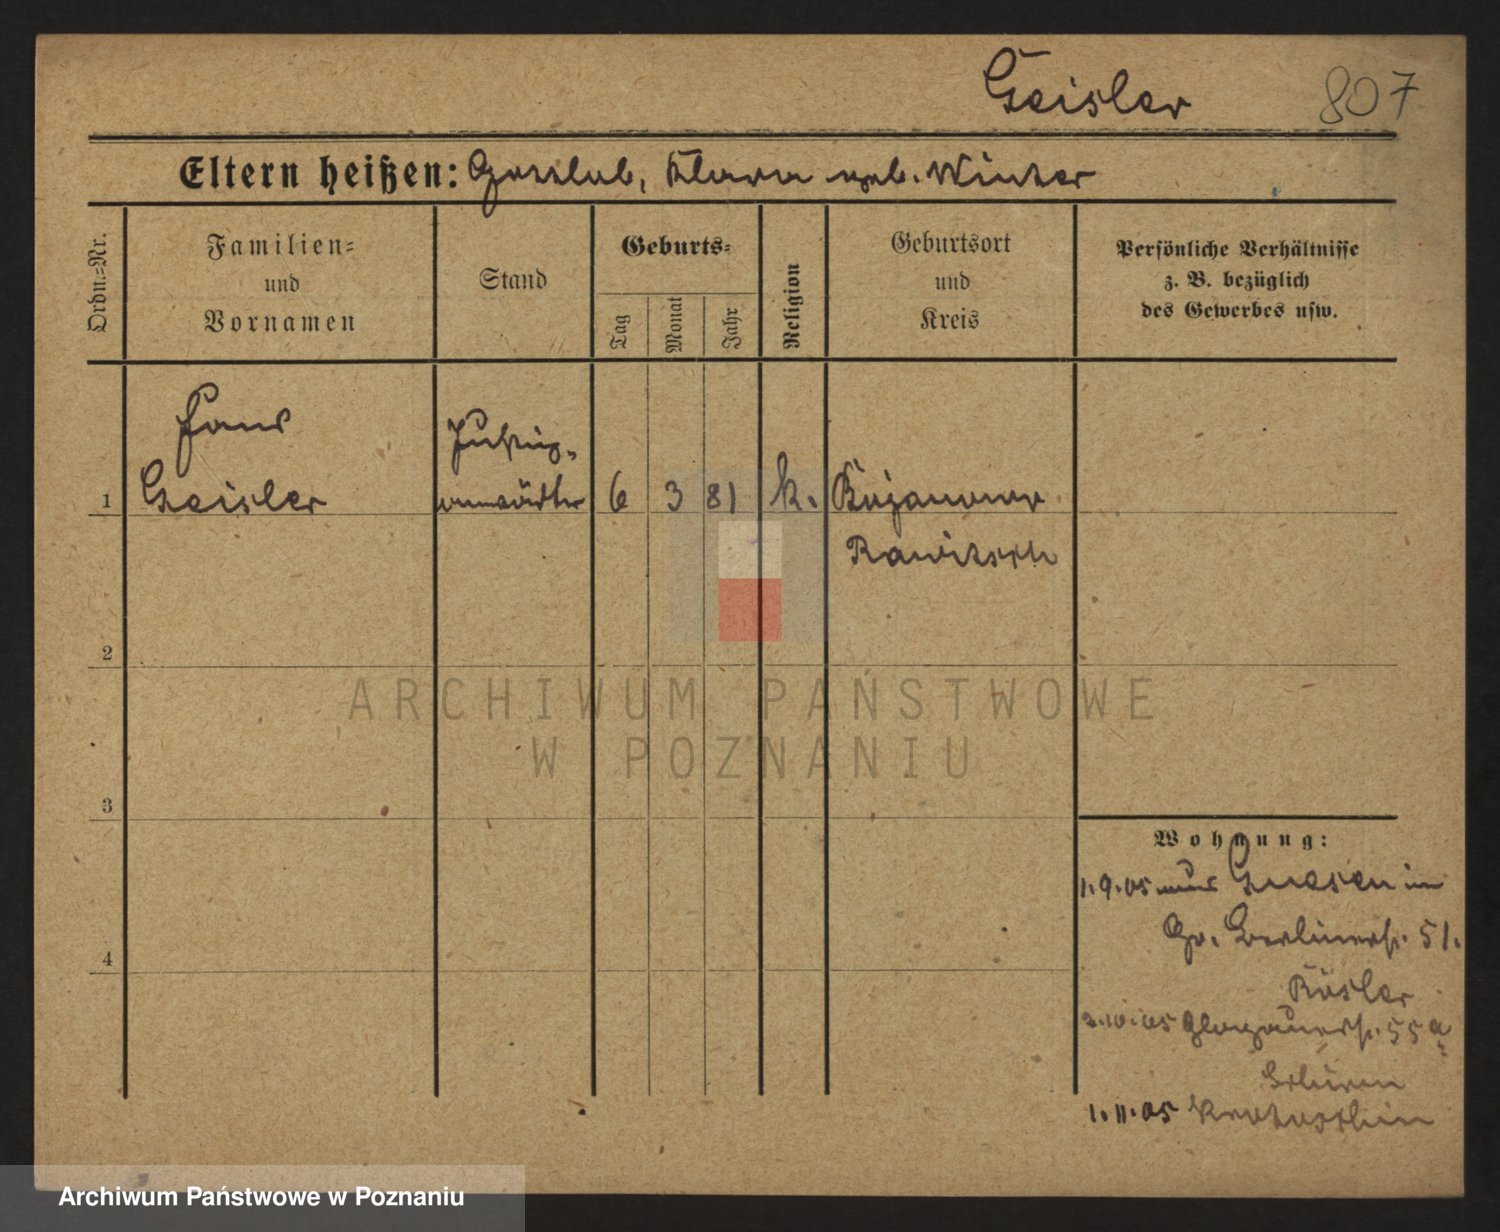 Geisler 807
Eltern heißen: Gottlieb, Klara geb. Winter
Ordn.=Nr.
Familien=
und
Vornamen
Stand
Geburts=
Tag
Monat
Jahr
Religion
Geburtsort
und
Kreis
Persönliche Verhältnisse
z. B. bezüglich
des Gewerbes usw.
Hans
Geisler
Justiz-
anwärter
1
6 3 81 k. Bojanowo
Rawitsch
2
3
4
ARCHIWUM PAŃSTWOWE
W POZNANIU
Wohnung:
1.9.05 aus Gnesen in
Gr. Berlinerstr. 51.
Rösler
2.10.05 Glogauerstr. 55a
1.11.05 Krotoschin
Archiwum Państwowe w Poznaniu